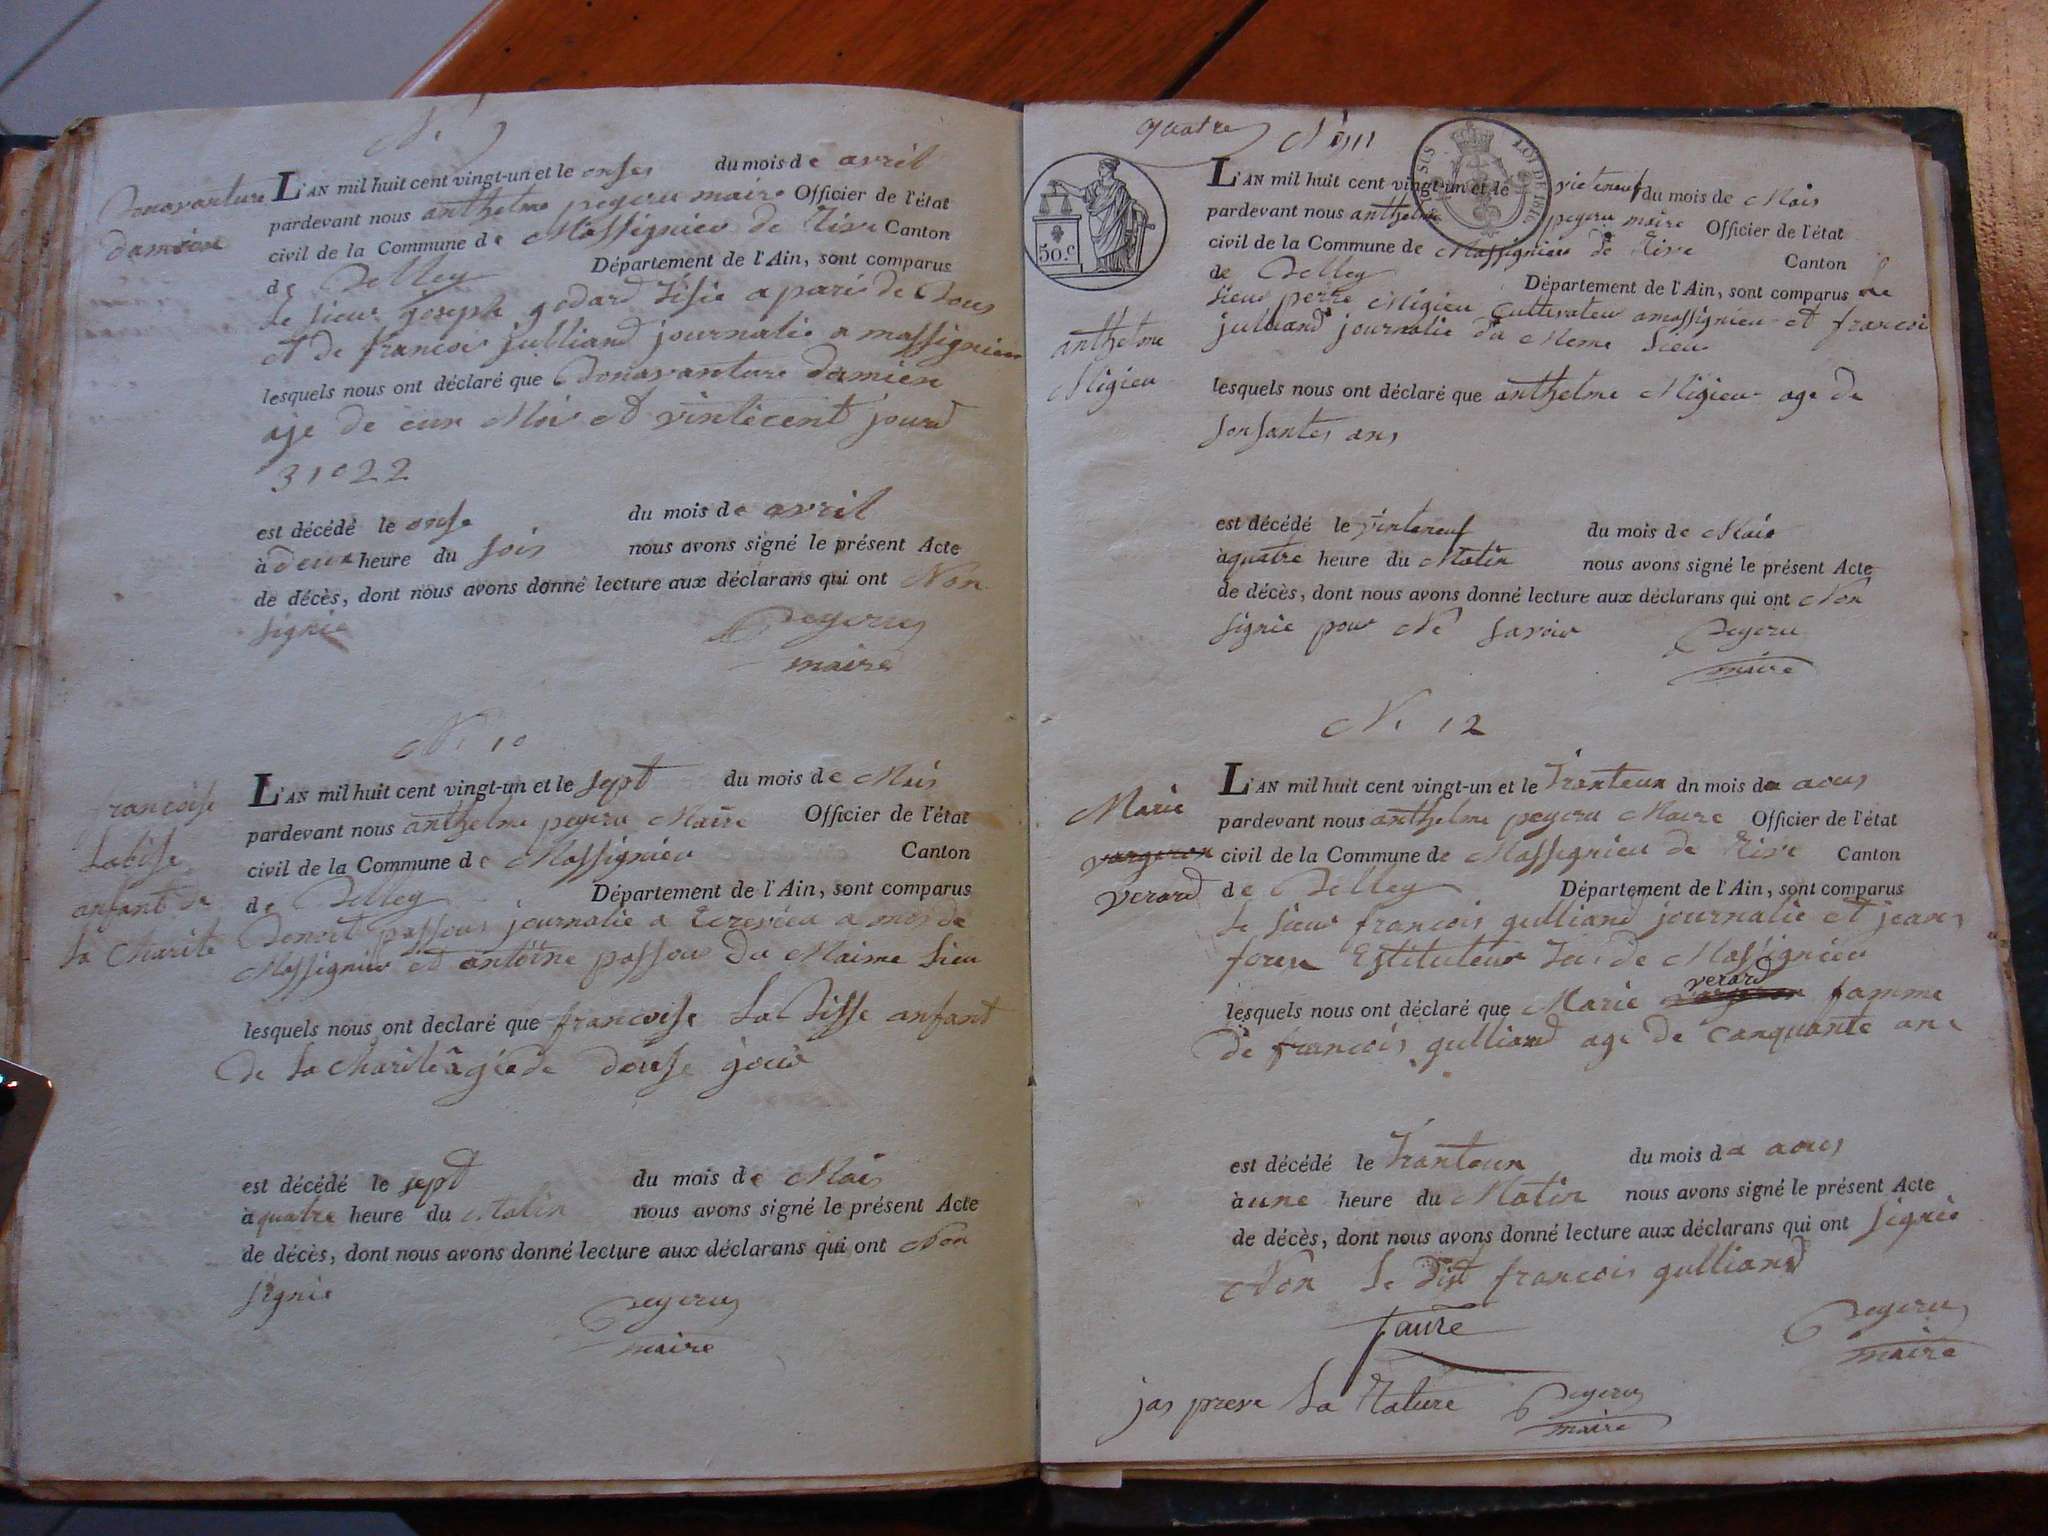 N. 9
Bonavanture
damien
L'AN mil huit cent vingt-un et le onse du mois de avril
pardevant nous anthelme peyeru maire Officier de l'état
civil de la Commune de Massignieu de Rive Canton
de Belley Département de l'Ain, sont comparus
le sieur joseph godard
et de francois julliand journalie a massignieu
lesquels nous ont déclaré que Bonavanture damien
aje de eun Mois et vintecent jourd
31022
est décédé le onse du mois de avril
à deux heure du soir nous avons signé le présent Acte
de décès, dont nous avons donné lecture aux déclarans qui ont Non
signie
peyeru
maire
N. 10
francoise
Labise
anfant de
la Charite
L'AN mil huit cent vingt-un et le sept du mois de Mais
pardevant nous anthelme peyeru Maire Officier de l'état
civil de la Commune de Massignieu Canton
de Belley Département de l'Ain, sont comparus
Benoit passou journalie a
Massignieu et antoine passou du Maime lieu
lesquels nous ont declaré que francoise La Bisse anfant
de la charite agée de douse jour
est décédé le sept du mois de Mais
à quatre heure du Matin nous avons signé le présent Acte
de décès, dont nous avons donné lecture aux déclarans qui ont Non
signie
peyeru
maire
quatre
N. 11
50.c
LOI DE 1816
anthelme
Migieu
L'AN mil huit cent vingt-un et le vinteneuf du mois de Mais
pardevant nous anthelme peyeru maire Officier de l'état
civil de la Commune de Massignieu de Rive Canton
de Belley Département de l'Ain, sont comparus le
sieur perre Migieu Cultivateur a massignieu et francois
julliand journalie du Meme Lieu
lesquels nous ont déclaré que anthelme Migieu age de
sonsantes ans
est décédé le vinteneuf du mois de Mais
à quatre heure du Matin nous avons signé le présent Acte
de décès, dont nous avons donné lecture aux déclarans qui ont Non
signie pour Ne savoir
peyeru
maire
N. 12
Marie
vargeron
verard
L'AN mil huit cent vingt-un et le Tranteun dn mois de aous
pardevant nous anthelme peyeru Maire Officier de l'état
civil de la Commune de Massignieu de Rive Canton
de Belley Département de l'Ain, sont comparus
le sieur francois gulliand journalie et jean
foreu Estituteur de Massignieu
verard
lesquels nous ont déclaré que Marie vargeron famme
de francois gulliand age de canquante ans
est décédé le Tranteun du mois de aous
à une heure du Matin nous avons signé le présent Acte
de décès, dont nous avons donné lecture aux déclarans qui ont signie
Non le dit francois gulliand
faure
peyeru
maire
jas preve La Rature
peyeru
maire